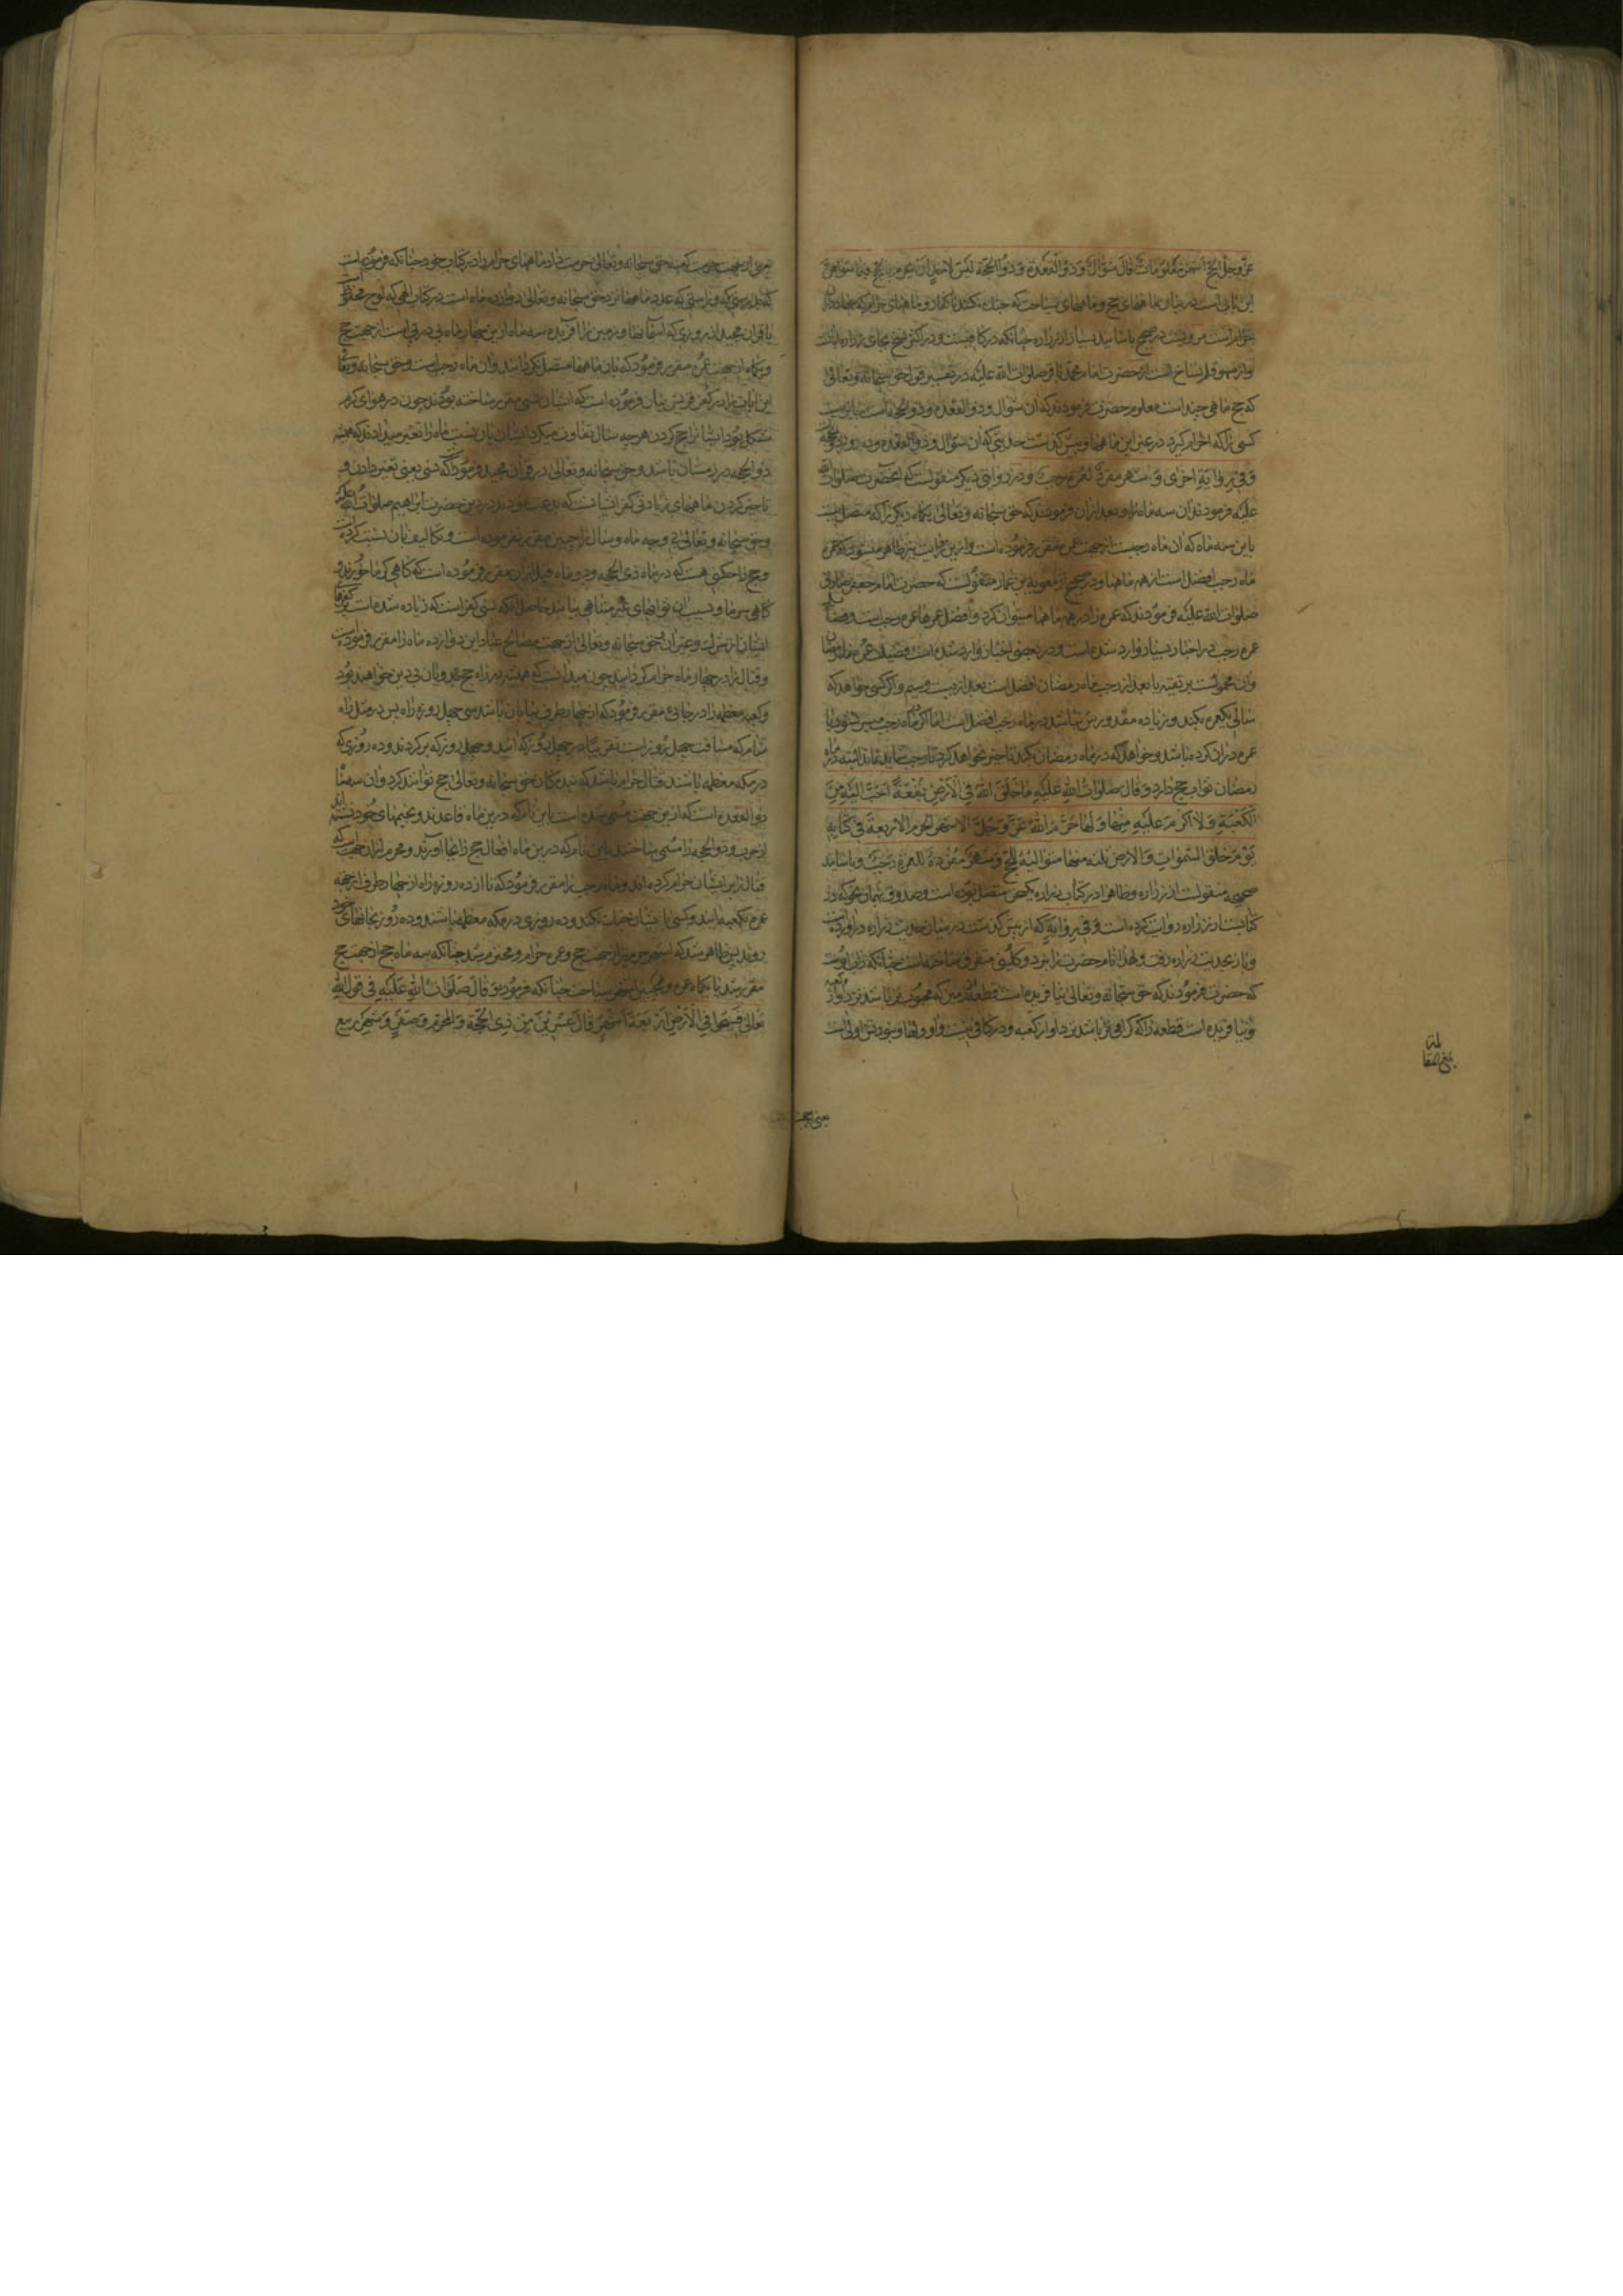 عز وجل الحج اشهر معلومات قال شوال وذو القعدة وذو الحجة ليس لاحد ان يحرم بالحج فيما سواهن
این بابی است در بیان ماههای حج و ماههای سیاحت که جنك نکنند با کفار و ماههای حرام که جهاد در ان
حرام است مرویست در صحیح باسانید بسیار از زراره چنانکه در کافیست و در اکثر نسخ بجای زراره ابان
واز سهو قلم نساخ است از حضرت امام محمد باقر صلوات الله علیه در تفسیر قول حق سبحانه وتعالی
که حج ماهی چند است معلوم حضرت فرمودند که ان شوال و ذو القعده و ذو الحجه است نیست
کسی را که احرام گیرد در غیر این ماهها و پیش گذشت حدیثی که ان شوال و ذو القعده وده روز ذو الحجه
وفی روایة اخری وشهر مفرد للعمرة رجب و در روایتی دیگر منقولست که آنحضرت صلوات الله
علیه فرمودند ان سه ماه را و بعد از ان فرمودند که حق سبحانه وتعالی یکماه دیگر را که متصل نیست
باین سه ماه که ان ماه رجبست از جهت عمره مقرر فرموده است و ازین قرائت نیز ظاهر میشود که عمره
ماه رجب افضل است از همه ماهها و در صحیح از معویة بن عمار منقولست که حضرت امام جعفر صادق
صلوات الله علیه فرمودند که عمره را در همه ماهها میتوان کرد و افضل عمرها عمره رجب است و فضایل
عمره رجب در اخبار بسیار وارد شده است و در بعضی اخبار وارد شده است فضیلت عمره ماه رمضان
و ان محمولست بر تقیه یا بعد از رجب ماه رمضان افضل است بعد از بیست وسیم و اگر کسی خواهد که
سالی یکعمره بکند و زیاده مقدورش نباشد در ماه رجب افضل است اما اگر ماه رجب میسر نشود یا
عمره در ان کرده باشد و خواهد که در ماه رمضان بکند تاخیر نخواهد کرد تا رجب نماید البته در ماه
رمضان ثواب حج دارد وقال صلوات الله علیه ما خلق الله فی الارض بقعة احب الیه من
الکعبة ولا اکرم علیه منها ولها حرم الله عز وجل الاشهر الحرم الاربعة فی کتابه
یوم خلق السموات والارض ثلثة منها متوالیة للحج وشهر مفرد للعمرة رجب و باسانید
صحیحه منقولست از زراره و ظاهرا در کتاب زراره بیکدیگر متصل بوده است و صدوق بهمان نحو که در
کتابست از زراره روایت کرده است و فی روایة که از پیش گذشت در میان حدیث زراره در آورده است
و باز بحدیث زراره رفت و لهذا نام حضرت را نبرد و کلینی متفرق ساخته است چنانکه دأب اوست
که حضرت فرمودند که حق سبحانه وتعالی نیافریده است قطعه زمین که محبوبتر باشد نزد او از کعبه
و نیافریده است قطعه را که گرامی‌تر باشد نزد او از کعبه و در کافی نیست واو ولها و نبودنش اولی است
بلغ المقابلة
یعنی از جهت حرمت کعبه حق سبحانه وتعالی حرمت داد ماههای حرام را در کتاب خود چنانکه فرموده است
که بدرستی که و راستی که عدد ماهها نزد حق سبحانه وتعالی دوازده ماه است در کتاب الهی که لوح محفوظ است
یا قران مجید از روزی که آسمانها و زمین را آفریده سه ماه ازین چهار ماه پی در پی است از جهت حج
و یکماه از جهت عمره مقرر فرمود که بان ماهها متصل نگردانید و ان ماه رجب است و حق سبحانه وتعالی
این ایات را در کفر قریش بیان فرموده است که ایشان نسی مقرر ساخته بودند چون در هوای گرم
مشکل بود ایشانرا حج کردن هر چه سال تفاوت میکرد ایشان بان نسبت ماه را تغییر میدادند که همیشه
ذو الحجه در زمستان باشد و حق سبحانه وتعالی در قران مجید فرمود که نسی یعنی تغییر دادن و
تاخیر کردن ماههای زیادتی کفر ایشانست که بدعت نمودند در دین حضرت ابراهیم صلوات الله علیه
وحق سبحانه وتعالی ماه و سال را چنین مقرر فرموده است و تکالیف بان نسبت کرده است
و حج را حکمتی هست که در ماه ذی الحجه و دو ماه قبل ازان مقرر فرموده است که گاهی گرما خورند و
گاهی سرما و بسبب ان ثوابهای غیر متناهی بیابند حاصل آنکه نسی کفر است که زیاده شده است بر کفرهای
ایشان از شرك و غیر ان و حق سبحانه وتعالی از جهت مصالح عباد این دوازده ماه را مقرر فرموده است
و قتال را در چهار ماه حرام گردانید چون میدانست که همیشه در راه حج بدویان بی دین خواهند بود
و کعبه معظمه را در جائی مقرر فرمود که از چهار طرف بیابان باشد سی چهل روزه راه پس در مثل راه
شام که مسافت چهل روز است تقریبا در چهل روز که آیند و چهل روز که برگردند و ده روزی که
در مکه معظمه باشند قتال حرام باشد که بندگان حق سبحانه وتعالی حج توانند کرد و ان
ذو القعده است که ازین جهت مسمی شده است باین نام که درین ماه قاعدند و بخیمهای خود نشسته اند
از حرب و ذو الحجه را مسمی ساختند باین نام که درین ماه افعال حج را بجا آورند و محرم از ان جهت است که
قتال را بر ایشان حرام کرده اند و ماه رجب را مقرر فرمود که تا از ده روزه راه از چهار طرف از جهة
عمره بکعبه آیند و کسی با ایشان جنك نکند و ده روزی در مکه معظمه باشند و ده روز بخانهای خود
روند پس ظاهر شد که اشهر حرم نیز از جهت حج و عمره حرام و محترم شد چنانکه سه ماه حج از جهت حج
مقرر شد با یکماه عمره و همچنین اشهر سیاحت چنانکه فرمود که وقال صلوات الله علیه فی قول الله
تعالی فسیحوا فی الارض اربعة اشهر قال عشرین من ذی الحجة والمحرم وصفر وشهر ربیع